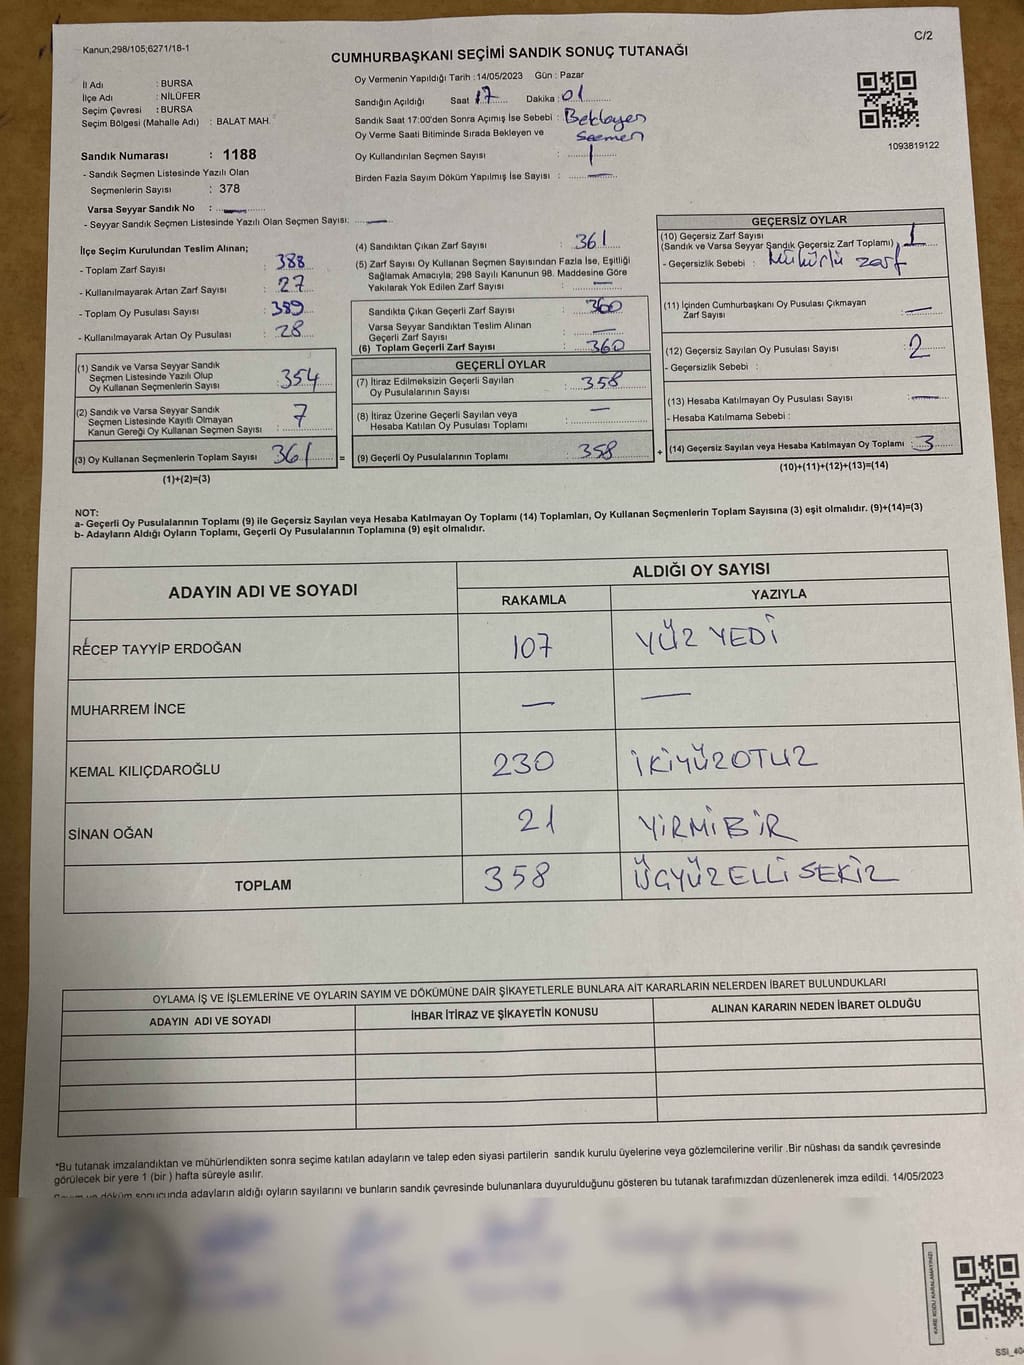 Kanun;298/105;6271/18-1
C/2
CUMHURBAŞKANI SEÇİMİ SANDIK SONUÇ TUTANAĞI
İl Adı : BURSA
İlçe Adı : NİLÜFER
Seçim Çevresi : BURSA
Seçim Bölgesi (Mahalle Adı) : BALAT MAH.
Sandık Numarası : 1188
- Sandık Seçmen Listesinde Yazılı Olan
Seçmenlerin Sayısı : 378
Varsa Seyyar Sandık No : —
- Seyyar Sandık Seçmen Listesinde Yazılı Olan Seçmen Sayısı: —
Oy Vermenin Yapıldığı Tarih : 14/05/2023 Gün : Pazar
Sandığın Açıldığı Saat 17 Dakika : 01
Sandık Saat 17:00'den Sonra Açımış İse Sebebi : Bekleyen
Oy Verme Saati Bitiminde Sırada Bekleyen ve Seçmen
Oy Kullandırılan Seçmen Sayısı : 1
Birden Fazla Sayım Döküm Yapılmış İse Sayısı : —
1093819122
İlçe Seçim Kurulundan Teslim Alınan;
- Toplam Zarf Sayısı : 388
- Kullanılmayarak Artan Zarf Sayısı : 27
- Toplam Oy Pusulası Sayısı : 389
- Kullanılmayarak Artan Oy Pusulası : 28
(1) Sandık ve Varsa Seyyar Sandık
Seçmen Listesinde Yazılı Olup
Oy Kullanan Seçmenlerin Sayısı : 354
(2) Sandık ve Varsa Seyyar Sandık
Seçmen Listesinde Kayıtlı Olmayan
Kanun Gereği Oy Kullanan Seçmen Sayısı : 7
(3) Oy Kullanan Seçmenlerin Toplam Sayısı 361 =
(1)+(2)=(3)
(4) Sandıktan Çıkan Zarf Sayısı : 361
(5) Zarf Sayısı Oy Kullanan Seçmen Sayısından Fazla İse, Eşitliği
Sağlamak Amacıyla; 298 Sayılı Kanunun 98. Maddesine Göre
Yakılarak Yok Edilen Zarf Sayısı : —
Sandıkta Çıkan Geçerli Zarf Sayısı : 360
Varsa Seyyar Sandıktan Teslim Alınan
Geçerli Zarf Sayısı : —
(6) Toplam Geçerli Zarf Sayısı : 360
GEÇERLİ OYLAR
(7) İtiraz Edilmeksizin Geçerli Sayılan
Oy Pusulalarının Sayısı : 358
(8) İtiraz Üzerine Geçerli Sayılan veya
Hesaba Katılan Oy Pusulası Toplamı : —
(9) Geçerli Oy Pusulalarının Toplamı : 358 +
GEÇERSİZ OYLAR
(10) Geçersiz Zarf Sayısı
(Sandık ve Varsa Seyyar Sandık Geçersiz Zarf Toplamı) 1
- Geçersizlik Sebebi : Mühürlü zarf
(11) İçinden Cumhurbaşkanı Oy Pusulası Çıkmayan
Zarf Sayısı : —
(12) Geçersiz Sayılan Oy Pusulası Sayısı : 2
- Geçersizlik Sebebi :
(13) Hesaba Katılmayan Oy Pusulası Sayısı : —
- Hesaba Katılmama Sebebi :
(14) Geçersiz Sayılan veya Hesaba Katılmayan Oy Toplamı : 3
(10)+(11)+(12)+(13)=(14)
NOT:
a- Geçerli Oy Pusulalarının Toplamı (9) ile Geçersiz Sayılan veya Hesaba Katılmayan Oy Toplamı (14) Toplamları, Oy Kullanan Seçmenlerin Toplam Sayısına (3) eşit olmalıdır. (9)+(14)=(3)
b- Adayların Aldığı Oyların Toplamı, Geçerli Oy Pusulalarının Toplamına (9) eşit olmalıdır.
ADAYIN ADI VE SOYADI
ALDIĞI OY SAYISI
RAKAMLA YAZIYLA
RECEP TAYYİP ERDOĞAN 107 YÜZ YEDİ
MUHARREM İNCE — —
KEMAL KILIÇDAROĞLU 230 İKİYÜZOTUZ
SİNAN OĞAN 21 YİRMİBİR
TOPLAM 358 ÜÇYÜZELLİSEKİZ
OYLAMA İŞ VE İŞLEMLERİNE VE OYLARIN SAYIM VE DÖKÜMÜNE DAİR ŞİKAYETLERLE BUNLARA AİT KARARLARIN NELERDEN İBARET BULUNDUKLARI
ADAYIN ADI VE SOYADI İHBAR İTİRAZ VE ŞİKAYETİN KONUSU ALINAN KARARIN NEDEN İBARET OLDUĞU
*Bu tutanak imzalandıktan ve mühürlendikten sonra seçime katılan adayların ve talep eden siyasi partilerin sandık kurulu üyelerine veya gözlemcilerine verilir .Bir nüshası da sandık çevresinde
görülecek bir yere 1 (bir ) hafta süreyle asılır.
döküm sonucunda adayların aldığı oyların sayılarını ve bunların sandık çevresinde bulunanlara duyurulduğunu gösteren bu tutanak tarafımızdan düzenlenerek imza edildi. 14/05/2023
KARE KODU KARALAMAYINIZ!